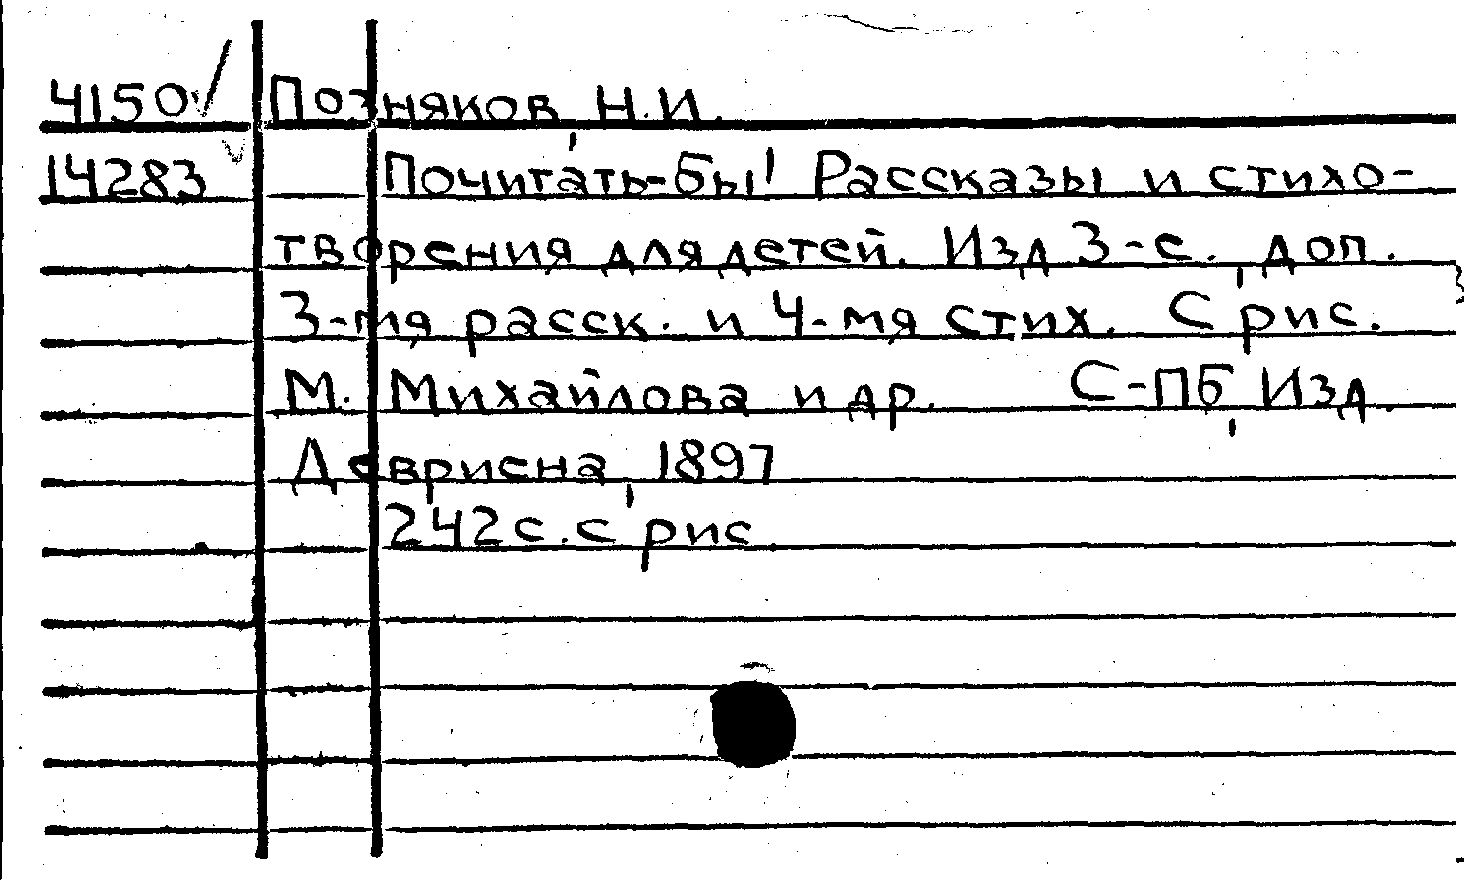 4150 Позняков, Н.И.
14283 Почитать-бы! Рассказы и стихо-
творения для детей. Изд 3-е., доп.
3-мя расск. и 4-мя стих. С рис.
М. Михайлова и др. С-ПБ, Изд.
Девриена, 1897
242с. с рис.